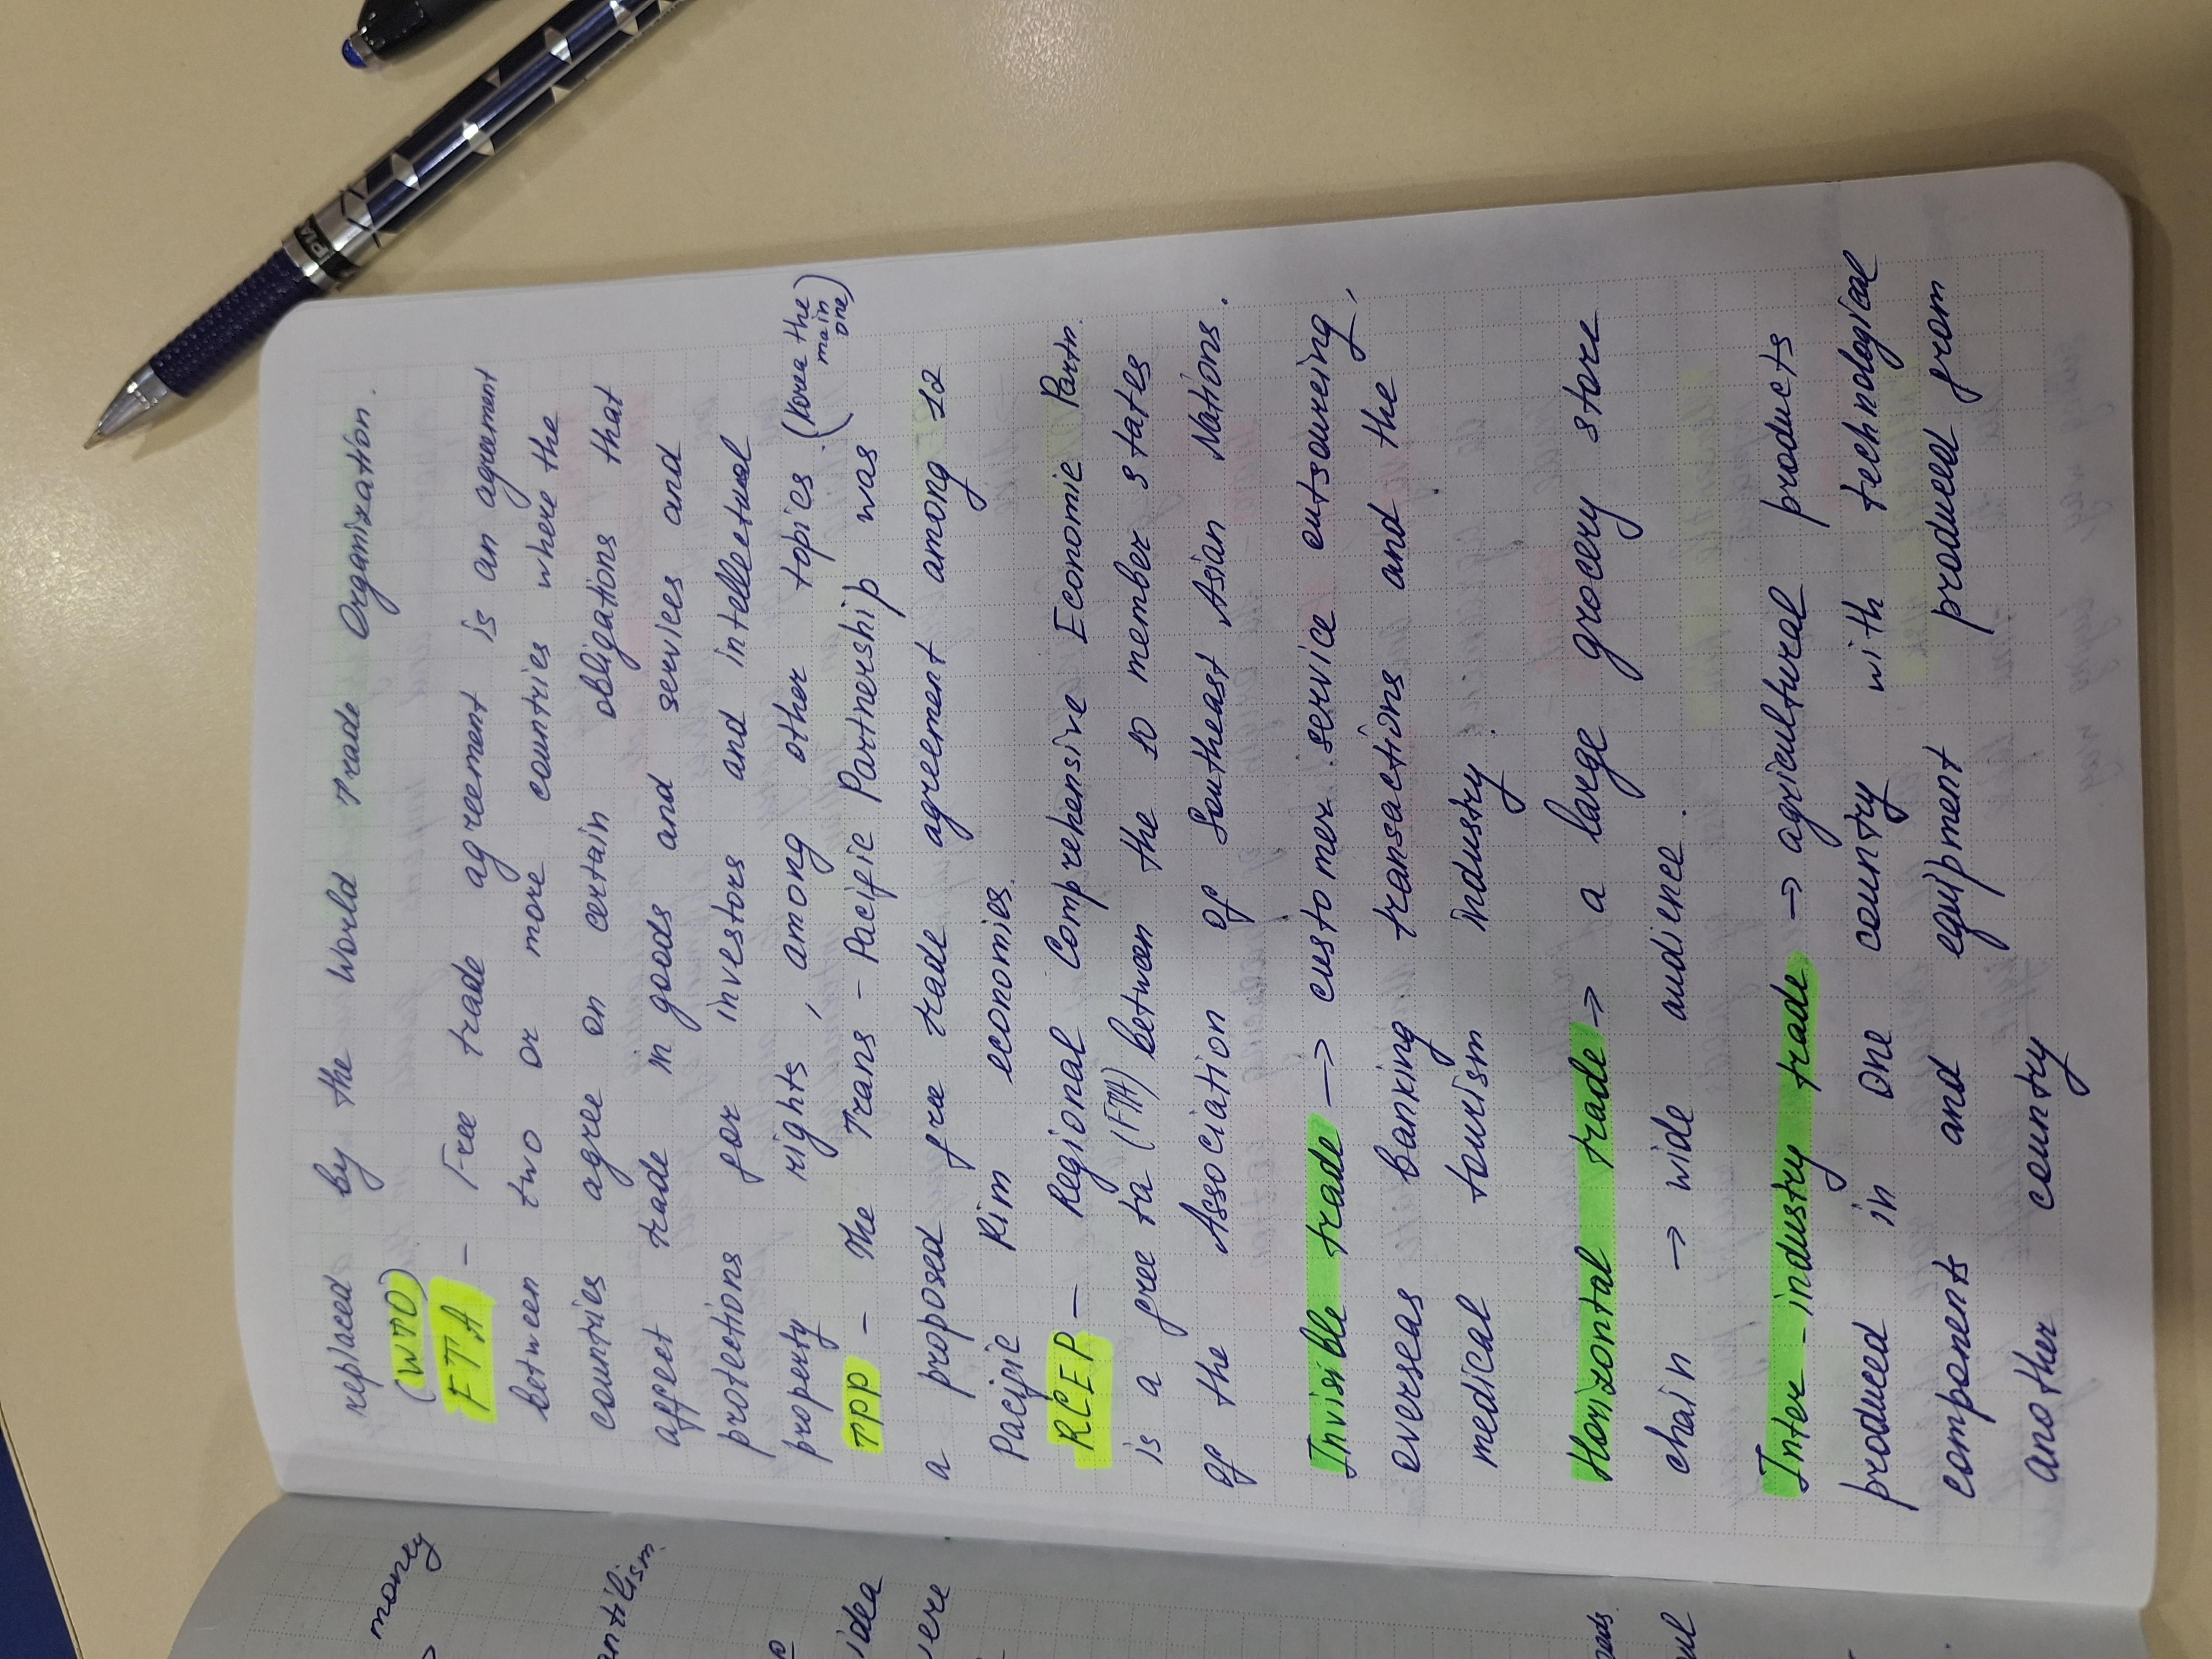 replaced by the World Trade Organization.
(WTO).
FTA - Free trade agreement is an agreement
between two or more countries where the
countries agree on certain obligations that
affect trade in goods and services and
protections for investors and intellectual
property rights, among other topics. (Korea the
main
one)
TPP - The Trans-Pacific Partnership was
a proposed free trade agreement among 12
Pacific Rim economies.
RCEP - Regional Comprehensive Economic Partn.
is a free ta (FTA) between the 10 member states
of the Association of Southeast Asian Nations.
Invisible trade → customer service outsourcing,
overseas banking transactions and the
medical tourism industry.
Horizontal trade → a large grocery store
chain → wide audience.
Inter-industry trade → agricultural products
produced in one country with technological
components and equipment produced from
another country
money
antilism.
idea